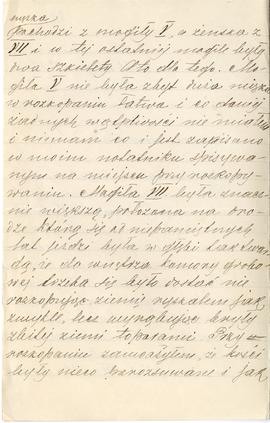 męzka
pochodzi z mogiły V, a żenska z
VII i w tej ostatniej mogile były
dwa szkielety. Oto dla tego. Mo-
giła V nie była zbyt duża między
w rozkopaniu łatwa i co do niej
żadnych wątpliwości nie miałem
i niemam co i jest zapisano
w moim notatniku spisywa-
nym na miejscu przy rozkopy-
waniu. Mogiła VII była znacz-
nie większą, położona na dro-
dze którą się od niepamiętnych
lat jeździ była w głębi tak twar-
dą, że do wnętrza komory grobo-
wej trzeba się było dostać nie
rozkopując ziemię rydlem jak
zwykle, lecz wyrąbując bryły
zbitej ziemi toporami. Przy
rozkopaniu zauważyłem, że kości
były nieco porozsuwane i jak